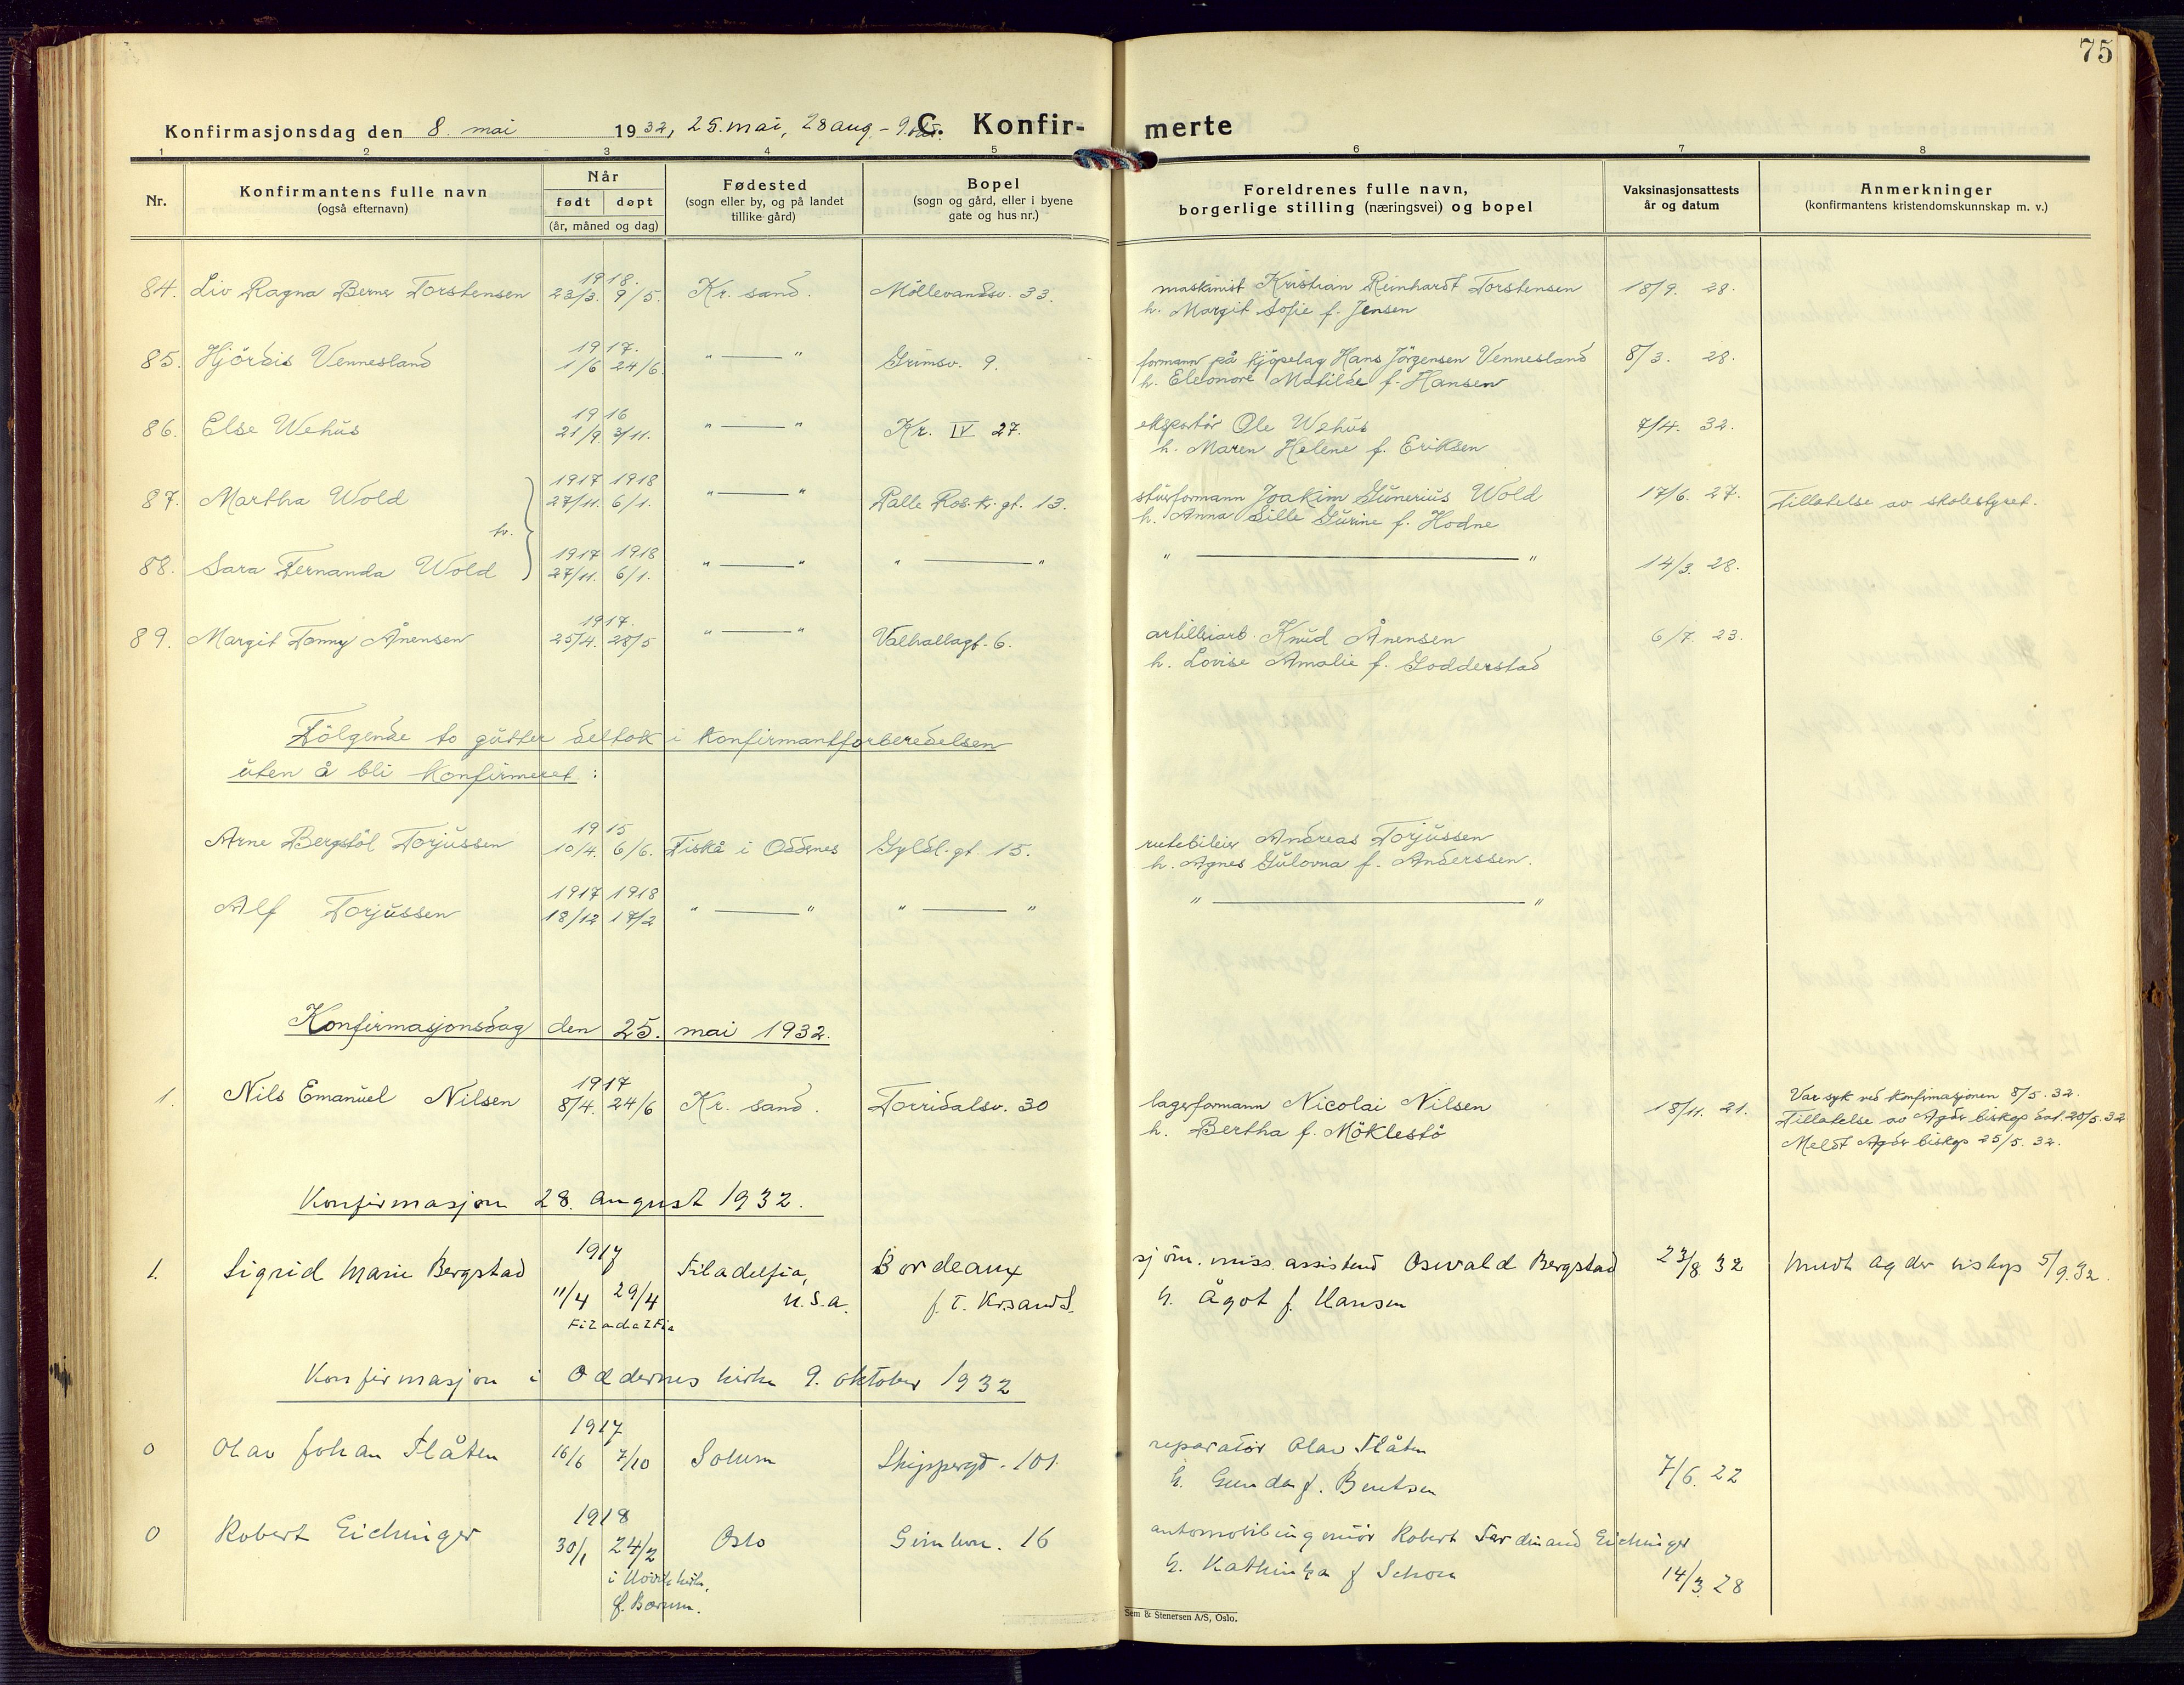 75
Konfirmasjonsdag den 8. mai 1932, 25. mai, 28 aug. - 9. okt. C. Konfirmerte
1 2 3 4 5 6 7 8
Nr. Konfirmantens fulle navn (også efternavn) Når født døpt (år, måned og dag) Fødested (sogn eller by, og på landet tillike gård) Bopel (sogn og gård, eller i byene gate og hus nr.) Foreldrenes fulle navn, borgerlige stilling (næringsvei) og bopel Vaksinasjonsattests år og datum Anmerkninger (konfirmantens kristendomskunnskap m. v.)
1918.
84. Liv Ragna Berner Torstensen 23/3. 9/5. Kr. sand. Möllevandsv. 33. maskinist Kristian Reinhardt Torstensen 18/9. 28.
h. Margit Sofie f. Jensen
1917.
85. Hjördis Vennesland 1/6 24/6. " — " Grimsv. 9. formann på kjöpelag Hans Jörgensen Vennesland 8/3. 28.
h. Eleonore Matilde f. Hansen
1916
86. Else Wehus 21/9. 3/11. " — " Kr. IV 27. ekspeditör Ole Wehus 7/4. 32.
h. Maren Helene f. Eriksen
1917 1918
87. Martha Wold 27/11. 6/1. " — " Palle Ros.kr.gt. 13. stuerformann Joakim Gunerius Wold 17/6. 27. Tillatelse av skolestyret.
tv. h. Anna Sille Gurine f. Hodne
1917 1918
88. Sara Fernanda Wold 27/11. 6/1. " — " " — " " — " 14/3. 28.
1917.
89. Margit Tonny Ånensen 25/4. 28/5 " — " Valhallagt. 6. artilleriarb. Knud Ånensen 6/7. 23.
h. Lovise Amalie f. Godderstad
Fölgende to gutter deltok i konfirmantforberedelsen
uten å bli konfirmeret :
1915
Arne Bergstöl Torjussen 10/4. 6/6. Fiskå i Oddernes Gyldl.gt. 15. rutebileier Andreas Torjussen
h. Agnes Gulovna f. Anderssen.
1917 1918
Alf Torjussen 18/12 17/2 " — " " — " " — "
Konfirmasjonsdag den 25. mai 1932.
1917
1. Nils Emanuel Nilsen 8/4. 24/6 Kr. sand. Torridalsv. 30 lagerformann Nicolai Nilsen 18/11. 21. Var syk ved konfirmasjonen 8/5. 32.
h. Bertha f. Möklestö Tillatelse av Agder biskop dat. 20/5. 32
Meldt Agder biskop 25/5. 32.
Konfirmasjon 28. august 1932.
1917
1. Sigrid Marie Bergstad 11/4 29/4 Filadelfia, Bordeaux sjöm. miss. assistent Oswald Bergstad 23/8 32 Meldt Agder biskop 5/9. 32.
Filadelfia U.S.A. f. T. Kr.sand S. h. Ågot f. Hansen
Konfirmasjon i Oddernes kirke 9. oktober 1932
1917
0 Olav Johan Flåten 16/6 7/10 Solum Skippergt. 101. reparatör Olav Flåten 7/6. 22
h. Gunda f. Bentsen
1918
0 Robert Eichinger 30/1 24/2 Oslo Gimlevn. 16 automobilingeniör Robert Ferdinand Eichinger
i Hövik kirke, h. Kathinka f. Schou 14/3. 28
f. Bærum.
Sem & Stenersen A/S, Oslo.